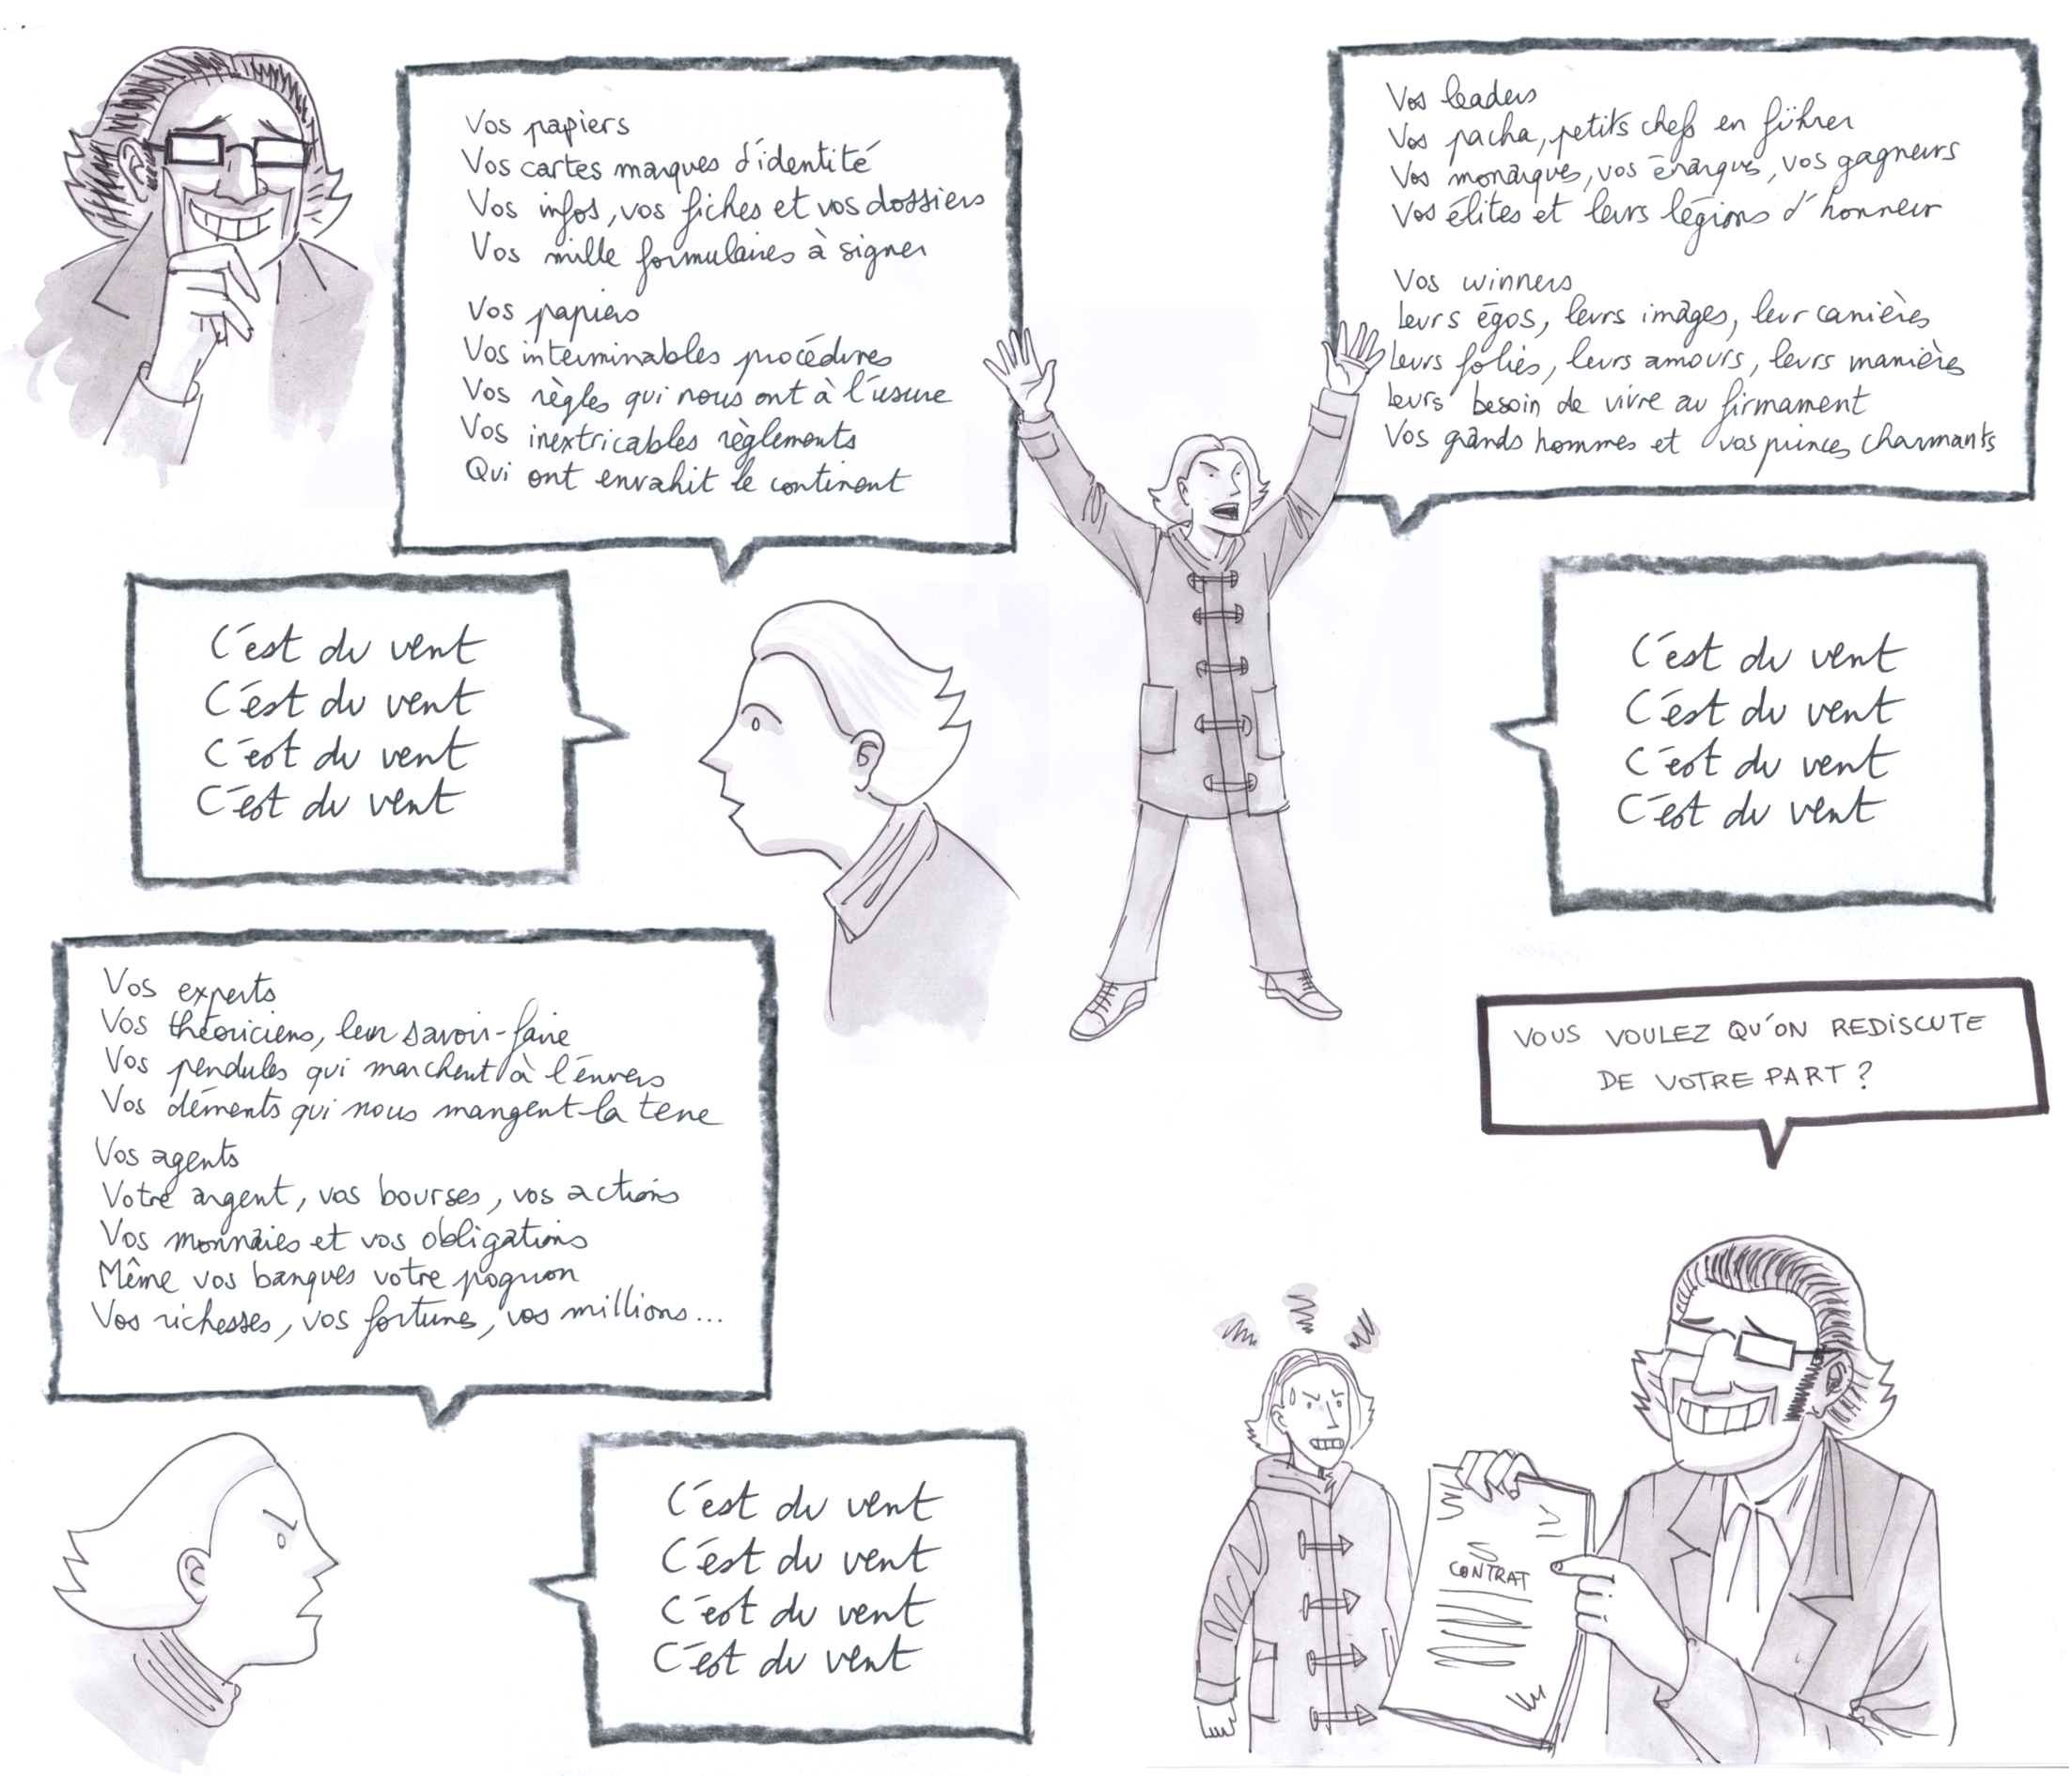 Vos papiers
Vos cartes marques d'identité
Vos infos, vos fiches et vos dossiers
Vos mille formulaires à signer
Vos papiers
Vos interminables procédures
Vos règles qui nous ont à l'usure
Vos inextricables règlements
Qui ont envahit le continent
C'est du vent
C'est du vent
C'est du vent
C'est du vent
Vos experts
Vos théoriciens, leur savoir-faire
Vos pendules qui marchent à l'envers
Vos déments qui nous mangent la terre
Vos agents
Votre argent, vos bourses, vos actions
Vos monnaies et vos obligations
Même vos banques votre pognon
Vos richesses, vos fortunes, vos millions...
C'est du vent
C'est du vent
C'est du vent
C'est du vent
Vos leaders
Vos pacha, petits chefs en führer
Vos monarques, vos énarques, vos gagneurs
Vos élites et leurs légions d'honneur
Vos winners
Leurs égos, leurs images, leur carrières
Leurs folies, leurs amours, leurs manières
Leurs besoin de vivre au firmament
Vos grands hommes et vos princes charmants
C'est du vent
C'est du vent
C'est du vent
C'est du vent
VOUS VOULEZ QU'ON REDISCUTE
DE VOTRE PART ?
CONTRAT